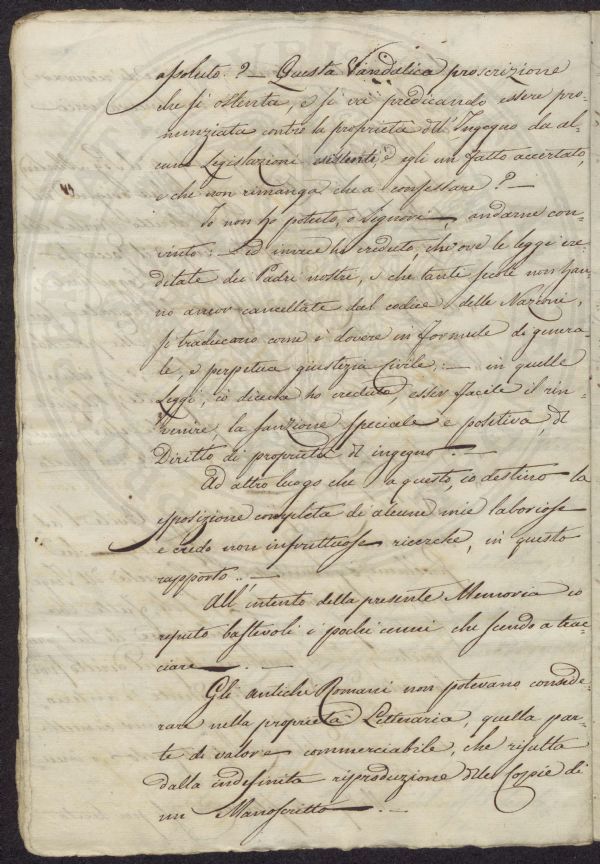 assoluto. ? — Questa Vandalica proscrizione
che si ostenta, e si va predicando essere pro-
nunziata contro la proprietà dell' Ingegno da al-
cune Legislazioni esistente, è egli un fatto accertato,
e che non rimanga che a confessare ? —
Io non ho potuto, o Signori, andarne con-
vinto : — ed invece ho creduto, che ove le leggi ere-
ditate dei Padri nostri, e che tante secoli non han-
no ancor cancellate dal codice delle Nazioni,
si traducano come è dovere in formule di genera-
le, e perpetua giustizia civile, — in quelle
Leggi, io diceva ho creduto, esser facile il rin-
venire, la sanzione speciale e positiva, di
Diritto di proprietà di ingegno. —
Ad altro luogo che a questo, io destino la
sposizione completa di alcune mie laboriose
e credo non infruttuose ricerche, in questo
rapporto. . —
All' intento della presente Memoria io
reputo bastevoli i pochi cenni che scendo a trac-
ciare — . —
Gli antichi Romani non potevano conside-
rare nella proprietà Letteraria, quella par-
te di valore commerciabile, che risulta
dalla indefinita riproduzione delle Coppie di
un Manoscritto — . —